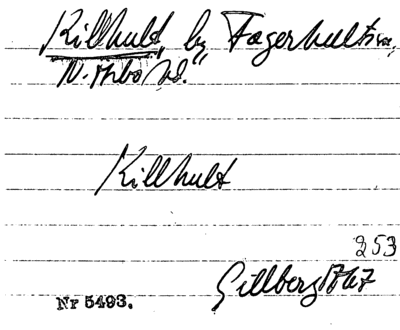 Killhult, by Fagerhults sn,
N. Åsbo hd.
Killhult
253
Gillberg 1767
Nr 5493.